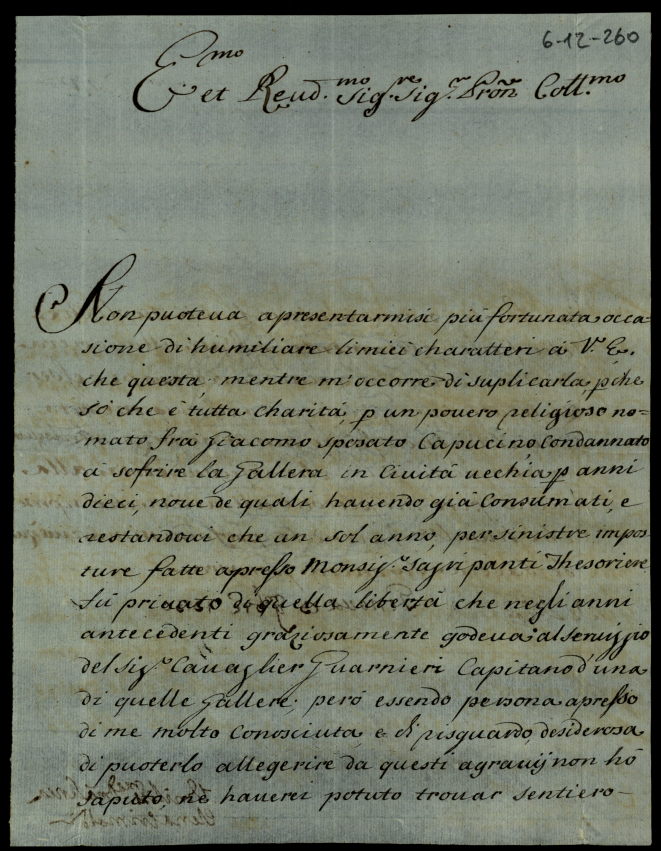 6-12-260
E.mo et Reud.mo Sig.re Sig.r Prōn Coll.mo
Non puoteua apresentarmisi piú fortunata occa=
sione di humiliare li miei charatteri á V. E.
che questa mentre m'occorre di suplicarla, p che
só che é tutta charitá, p un pouero religioso no=
mato frá Giacomo sposato Capucino Condannato
á sofrire la Gallera in Ciuitá uechia p anni
dieci, noue de quali hauendo giá Consúmati, e
restandoui che un sol anno, per sinistre impos=
ture fatte apresso Monsig.r Sagripanti Thesoriere
fú priuato di quella libertá che negli anni
antecedenti graziosamente godeua al seruiggio
del Sig.r Cauaglier Guarnieri Capitano d'una
di quelle Gallere; peró essendo persona apresso
di me molto Conosciuta, e di risguardo, desiderosa
di puoterlo allegerire da questi agrauij non hó
saputo, ne hauerei potuto trouar sentiero=